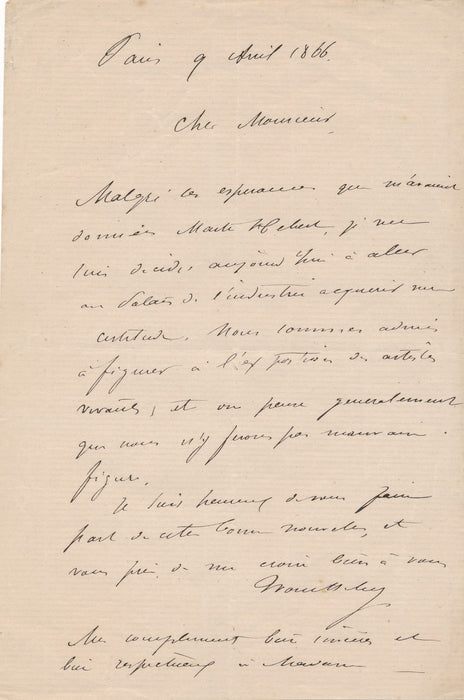 Paris 9 Avril 1866.
Cher Monsieur,
Malgré les espérances que m'avaient
données Hebert, je me
suis décidé aujourd'hui à aller
au Palais de l'industrie acquerir une
certitude. Nous sommes admis
à figurer à l'exposition des artistes
vivants, et on pense generalement
que nous n'y ferons pas mauvaise
figure.
Je suis heureux de vous faire
part de cette bonne nouvelle, et
vous prie de me croire bien à vous
Mes compliments bien sincères et
bien respectueux à Madame